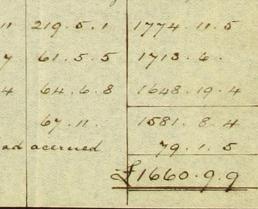 11 219.5.1 1774.11.5
7 61.5.5 1713.6.
4 64.6.8 1648.19.4
67.11. 1581.8.4
ad accrued 79.1.5
£1660.9.9